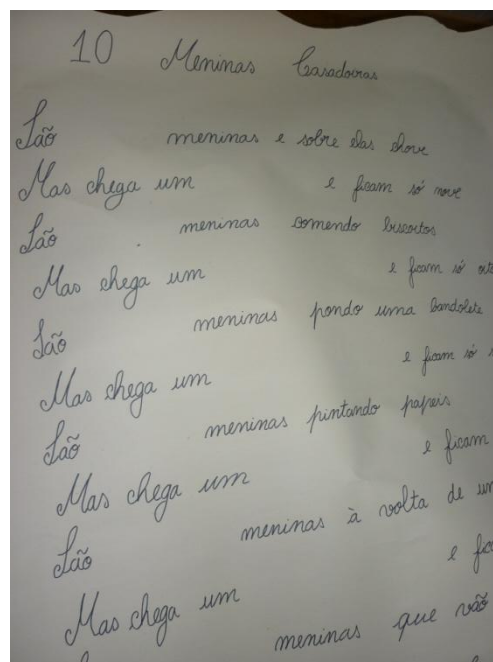 10 Meninas Casadoiras
São meninas e sobre elas chove
Mas chega um e ficam só nove
São meninas comendo biscoitos
Mas chega um e ficam só
São meninas pondo uma bandolete
Mas chega um e ficam só
São meninas pintando papeis
Mas chega um e ficam
São meninas à volta de
Mas chega um e
meninas que vão